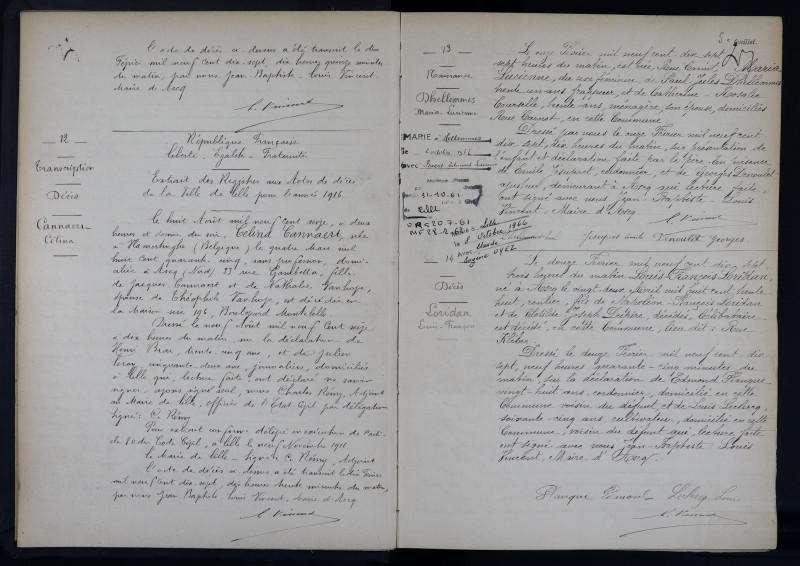 L'acte de décès ci-dessus a été transcrit le dix
Février mil neuf cent dix-sept, dix heures quinze minutes
du matin, par nous Jean-Baptiste-Louis Vincent
Maire d'Ascq
L. Vincent
12
Transcription
Décès
Cannaert
Célina
République Française
Liberté - Egalité - Fraternité
Extrait des Registres aux Actes de décès
de la Ville de Lille pour l'année 1916
Le huit Août mil neuf cent seize, à deux
heures et demie du soir, Célina Cannaert, née
à (Belgique) le quatre Mars mil
huit cent quarante-cinq, sans profession, domi-
ciliée à Ascq (Nord) 33 rue Gambetta, fille
de Jacques Cannaert et de Nathalie
épouse de Théophile est décédée en
la Maison sise 196, Boulevard Montebello
Dressé le neuf Août mil neuf cent seize
à dix heures du matin, sur la déclaration de
Henri trente-cinq ans, et de Julien
Leroy, cinquante-deux ans, journaliers, domiciliés
à Lille qui, lecture faite, ont déclaré ne savoir
signer, avons signé seul, nous Charles Rémy, Adjoint
au Maire de Lille, officier de l'Etat Civil par délégation
signé: C. Rémy
Pour extrait conforme délivré en exécution de l'arti-
cle 80 du Code Civil, à Lille le neuf Novembre 1916
Le Maire de Lille - signé: C. Rémy, Adjoint
L'acte de décès ci-dessus a été transcrit le dix Février
mil neuf cent dix-sept, dix heures trente minutes du matin,
par nous Jean-Baptiste Louis Vincent, Maire d'Ascq
L. Vincent
5e feuillet.
13
Naissance
Dhellemmes
Maria-Lucienne
MARIÉ à Hellemmes
le
avec
31-10-61
Lille
RC 20.7.61
14
Eugène OYEZ
Le onze Février mil neuf cent dix-sept
sept heures du matin, est née, Rue Carnot, Maria
Lucienne, du sexe féminin, de Paul Jules Dhellemmes
trente-un ans, frappeur, et de Catherine-Rosalie
trente ans, ménagère, son épouse, domiciliés
Rue Carnot, en cette Commune
Dressé par nous le onze Février mil neuf cent
dix-sept, dix heures du matin, sur présentation de
l'enfant et déclaration faite par le père en présence
de Camille Jouspart, et de Georges Denoulet
ajusteur, demeurant à Ascq qui lecture faite,
ont signé avec nous Jean-Baptiste-Louis
Vincent - Maire d'Ascq
L. Vincent
Denoulet Georges.
Décès
Loridan
Louis-François
Le douze Février mil neuf cent dix-sept,
heures du matin Louis-François Loridan,
né à Ascq le vingt-deux Avril mil huit cent trente
huit, rentier, fils de Napoléon-François Loridan
et de Clotilde Joseph décédés, Célibataire
est décédé, en cette Commune, lieu dit: Rue
Kléber
Dressé le douze Février mil neuf cent dix
sept, neuf heures quarante-cinq minutes du
matin, sur la déclaration de Edmond Planque
vingt-huit ans, cordonnier, domicilié en cette
Commune voisin du défunt, et de Louis Leclercq,
soixante-cinq ans, cultivateur, domicilié en cette
Commune, voisin du défunt qui, lecture faite
ont signé avec nous Jean-Baptiste-Louis
Vincent, Maire d'Ascq.
Planque Edmond Leclercq Louis
L. Vincent